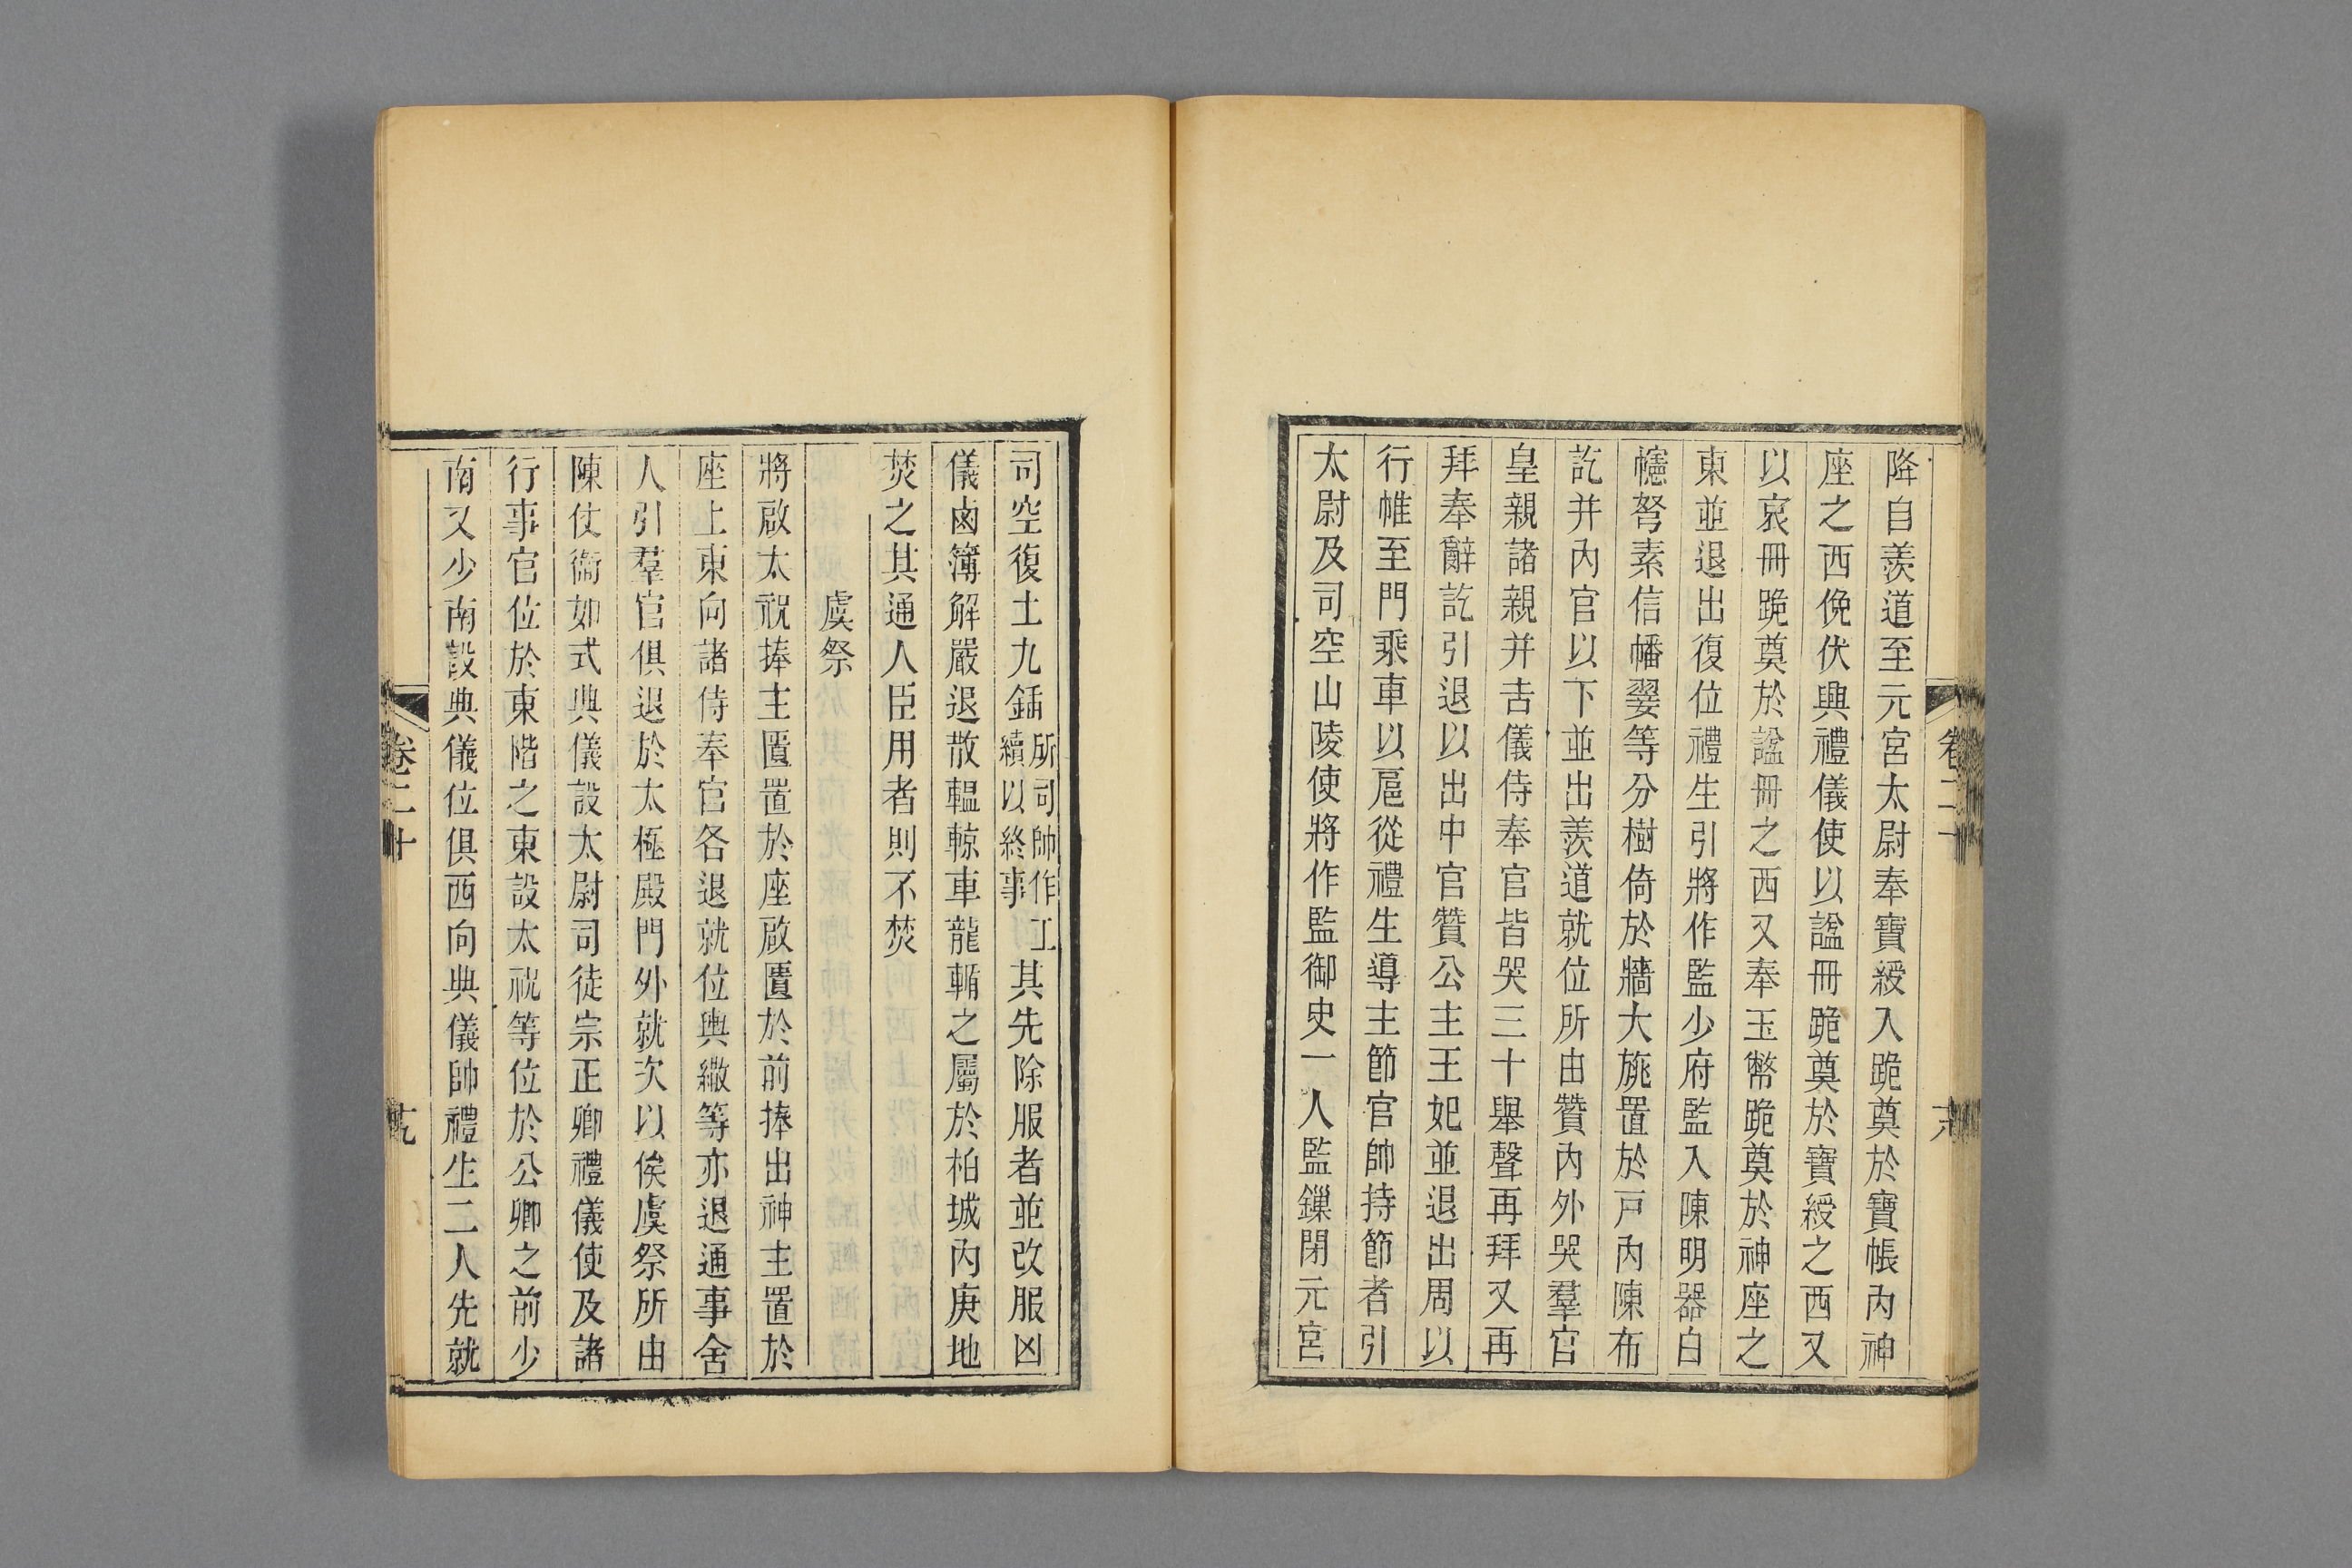 降自羨道至元宮太尉奉寶綬入跪奠於寶帳內神
座之西俛伏興禮儀使以諡冊跪奠於寶綬之西又
以哀冊跪奠於諡冊之西又奉玉幣跪奠於神座之
東並退出復位禮生引將作監少府監入陳明器白
幰弩素信幡翣等分樹倚於牆大旐置於戸內陳布
訖并內官以下並出羨道就位所由贊內外哭羣官
皇親諸親并吉儀侍奉官皆哭三十舉聲再拜又再
拜奉辭訖引退以出中官贊公主王妃並退出周以
行帷至門乘車以扈從禮生導主節官帥持節者引
太尉及司空山陵使將作監御史一人監鏁閉元宮
司空復土九鍤所司帥作工續以終事其先除服者並改服凶
儀鹵簿解嚴退散轀輬車龍輴之屬於柏城內庚地
焚之其通人臣用者則不焚
虞祭
將啟太祝捧主匱置於座啟匱於前捧出神主置於
座上東向諸侍奉官各退就位輿繖等亦退通事舍
人引羣官俱退於太極殿門外就次以俟虞祭所由
陳仗衞如式典儀設太尉司徒宗正卿禮儀使及諸
行事官位於東階之東設太祝等位於公卿之前少
南又少南設典儀位俱西向典儀帥禮生二人先就
卷二十